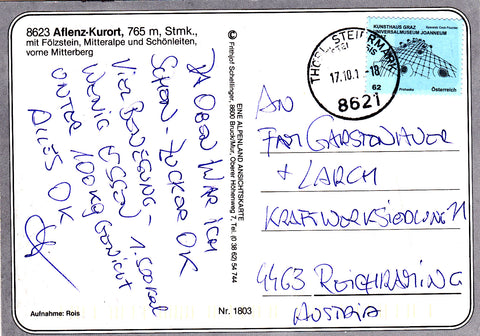 8623 Aflenz-Kurort, 765 m, Stmk.,
mit Fölzstein, Mitteralpe und Schönleiten,
vorne Mitterberg
DA OBEN WAR ICH
SCHON - ZUCKER OK
VIEL BEWEGUNG -
WENIG ESSEN 1.500 KCAL
UNTER 100 KG GEWICHT
ALLES OK
Aufnahme: Rois
© Frithjof Schellinger, 8600 Bruck/Mur, Oberer Höhenweg 7, Tel. (0 38 62) 54 744
EINE ALPENLAND ANSICHTSKARTE
Nr. 1803
KUNSTHAUS GRAZ
UNIVERSALMUSEUM JOANNEUM
62
Österreich
THÖRL, STEIERMARK
17.10.1 -18
8621
AN
FAM GARSTENAUER
+ LARCH
KRAFTWERKSIEDLUNG 11
4463 REICHRAMING
AUSTRIA